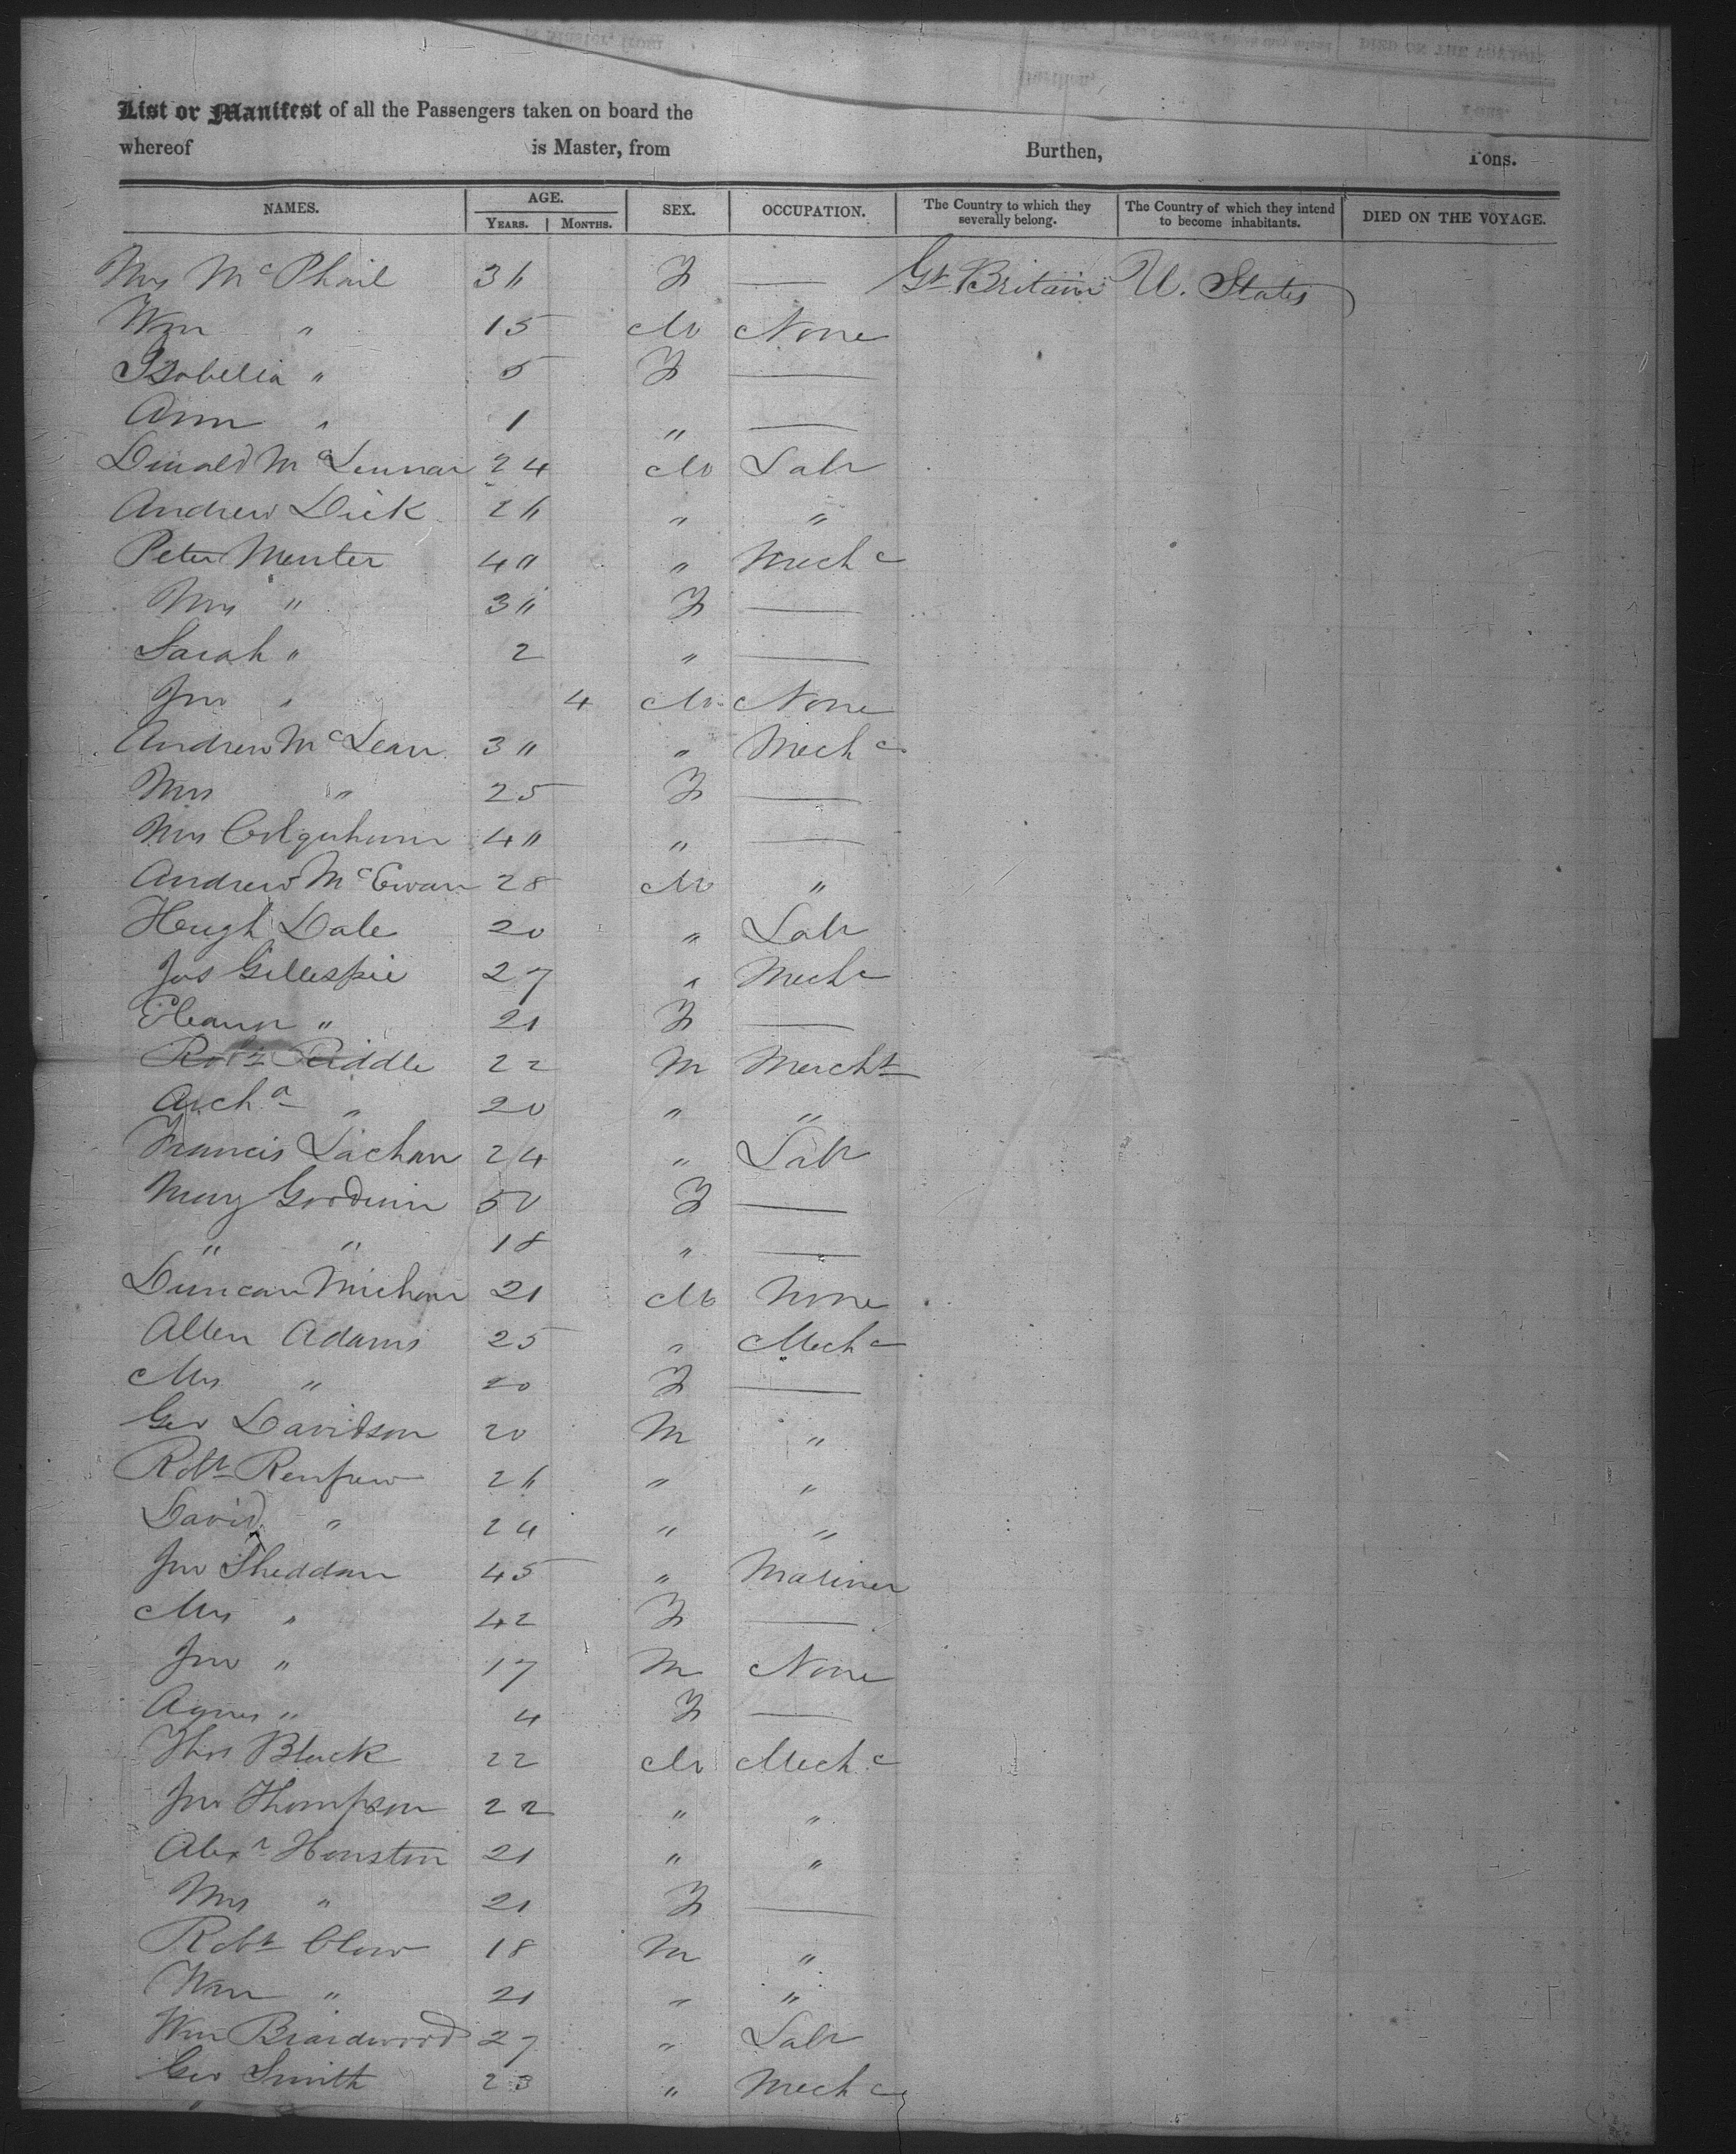 List or Manifest of all the Passengers taken on board the
whereof is Master, from Burthen, Tons.
NAMES. AGE. YEARS. MONTHS. SEX. OCCUPATION. The Country to which they severally belong. The Country of which they intend to become inhabitants. DIED ON THE VOYAGE.
Mrs McPhail 36 F — Gt Britain U. States
Wm " 15 M None
Isabella " 5 F —
Ann " 1 " —
Donald McLennan 24 M Labr
Andrew Dick 26 " "
Peter Menter 40 " Mechc
Mrs " 30 F —
Sarah " 2 " —
Jno " 4 M None
Andrew McLean 30 " Mechc
Mrs " 25 F —
Mrs Colquhoun 40 " —
Andrew McEwan 28 M "
Hugh Dale 20 " Labr
Jas Gillespie 27 " Mechc
Eleanor " 21 F —
Robt Riddle 22 M Mercht
Archd " 20 " "
Francis Lachan 24 " Labr
Mary Goodwin 50 F —
" " 18 " —
Duncan 21 M None
Allen Adams 25 " Mechc
Mrs " 20 F —
Geo Davidson 20 M "
Robt Renfrew 26 " "
David " 24 " "
Jno Sheddan 45 " Mariner
Mrs " 42 F —
Jno " 17 M None
Agnes " 4 F —
Thos Black 22 M Mechc
Jno Thompson 22 " "
Alexr Houston 21 " "
Mrs " 21 F —
Robt Clow 18 M "
Wm " 21 " "
Wm Beardwood 27 " Labr
Geo Smith 23 " Mechc